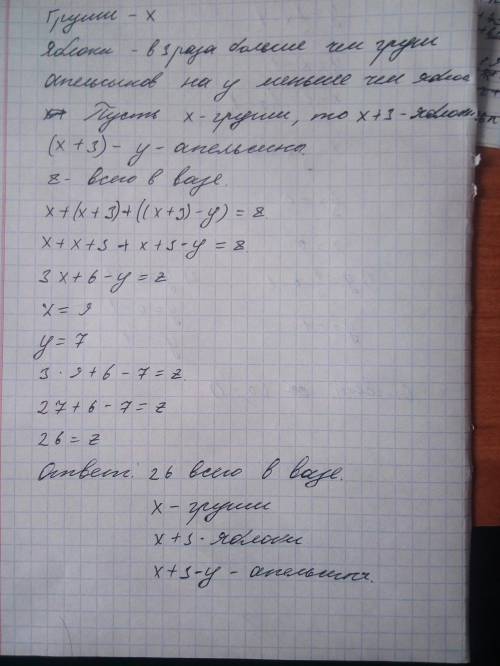 Груши - x
Яблоки - в 3 раза больше чем груши
апельсинов на y меньше чем яблок
Пусть x - груши, то x+3 - яблоки
(x+3) - y - апельсины.
z - всего в вазе.
x+(x+3)+((x+3)-y) = z
x+x+3+x+3-y = z
3x+6-y = z
x = 9
y = 7
3·9+6-7 = z
27+6-7 = z
26 = z
Ответ: 26 всего в вазе.
x - груши
x+3 - яблоки
x+3-y - апельсины.